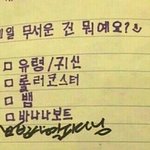 제일 무서운 건 뭐예요?
□ 유령/귀신
□ 롤러코스터
□ 뱀
□ 바나나보트